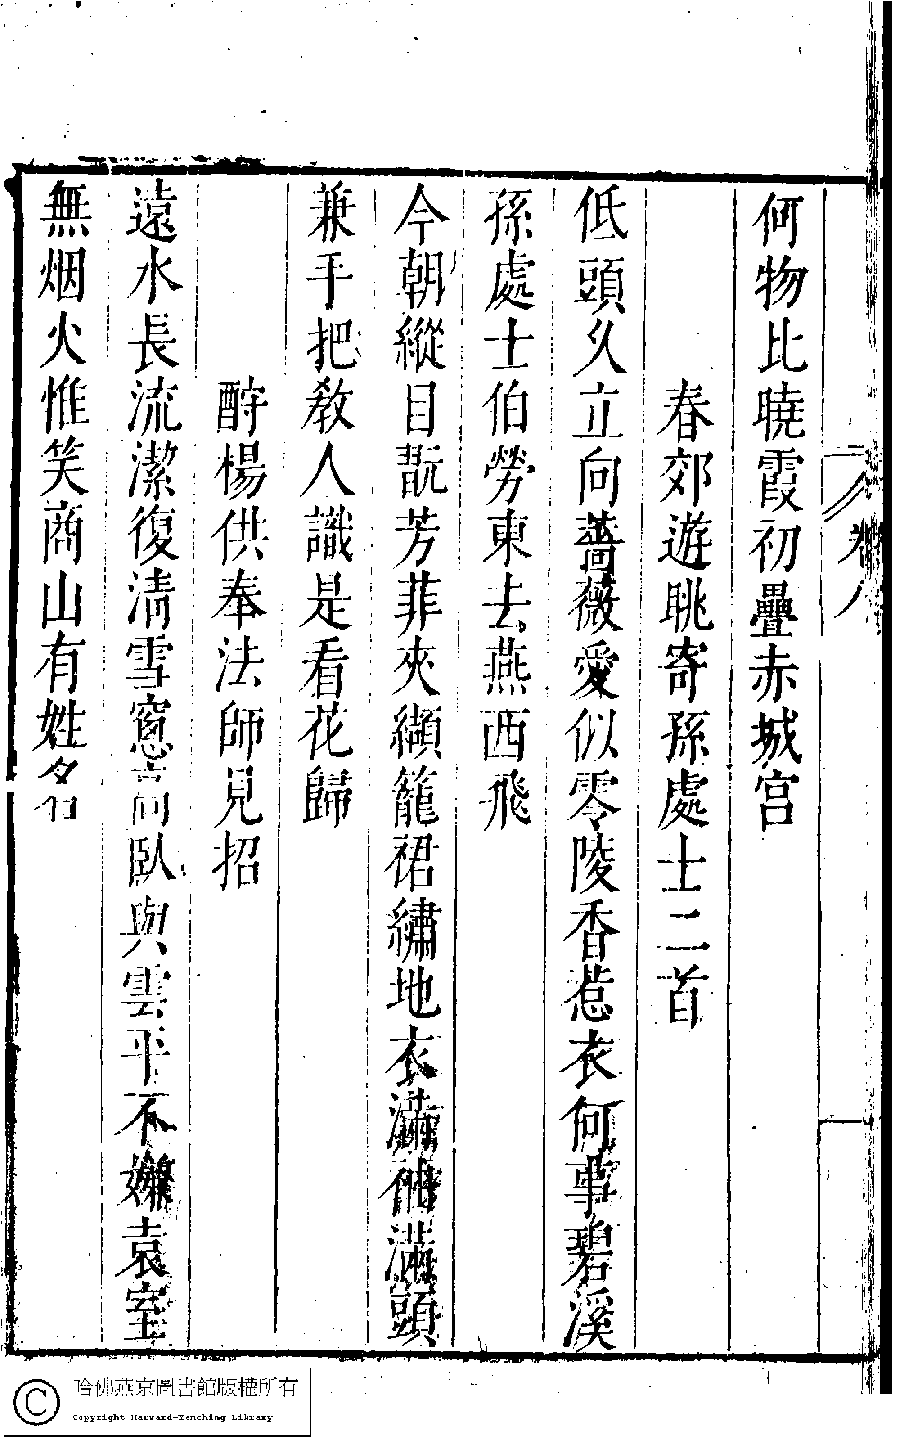 卷八
何物比曉霞初疊赤城宮
春郊遊眺寄孫處士二首
低頭久立向薔薇愛似零陵香惹衣何事碧溪
孫處士伯勞東去燕西飛
今朝縱目翫芳菲夾纈籠裙繡地衣滿袖滿頭
兼手把教人識是看花歸
酧楊供奉法師見招
遠水長流潔復清雪窻高臥與雲平不嫌袁室
無烟火惟笑商山有姓名
哈佛燕京圖書館版權所有
Copyright Harvard-Yenching Library